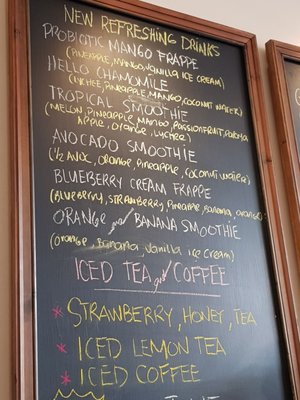 NEW REFRESHING DRINKS
PROBIOTIC MANGO FRAPPE
(PINEAPPLE, MANGO, VANILLA ICE CREAM)
HELLO CHAMOMILE
(LYCHEE, PINEAPPLE, MANGO, COCONUT WATER)
TROPICAL SMOOTHIE
(MELON, PINEAPPLE, MANGO, PASSIONFRUIT, PAPAYA
APPLE, ORANGE, LYCHEE)
AVOCADO SMOOTHIE
(1/2 AVOC, ORANGE, PINEAPPLE, COCONUT WATER)
BLUEBERRY CREAM FRAPPE
(BLUEBERRY, STRAWBERRY, PINEAPPLE, BANANA, ORANGE)
ORANGE and/ BANANA SMOOTHIE
(Orange, Banana, Vanilla ice cream)
ICED TEA and/ COFFEE
* STRAWBERRY, HONEY, TEA
* ICED LEMON TEA
* ICED COFFEE